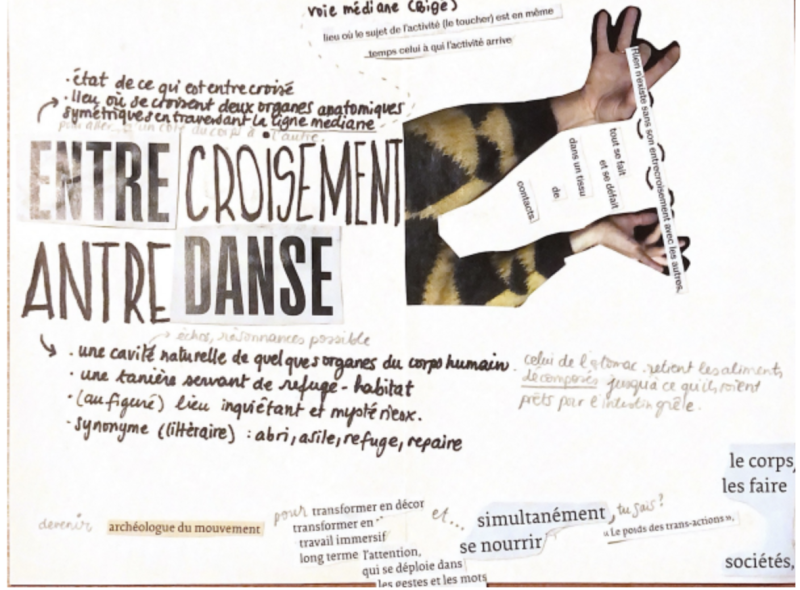 voie médiane (Bigé)
lieu où le sujet de l'activité (le toucher) est en même
temps celui à qui l'activité arrive
· état de ce qui est entrecroisé
· lieu où se croisent deux organes anatomiques
symétriques en traversant la ligne médiane
pour aller d'un côté du corps à l'autre.
ENTRE CROISEMENT
ANTRE DANSE
Rien n'existe sans son entrecroisement avec les autres,
tout se fait
et se défait
dans un tissu
de
contacts.
échos, résonnances possible
· une cavité naturelle de quelques organes du corps humain.
celui de l'estomac retient les aliments,
décomposés jusqu'à ce qu'ils soient
prêts pour l'intestin grêle.
· une tanière servant de refuge - habitat
· (au figuré) lieu inquiétant et mystérieux.
· synonyme (littéraire) : abri, asile, refuge, repaire
le corps,
les faire
sociétés,
devenir archéologue du mouvement
pour transformer en décor
transformer en
travail immersif
long terme l'attention,
qui se déploie dans
les gestes et les mots
et... simultanément, tu sais?
se nourrir
« Le poids des trans-actions »,